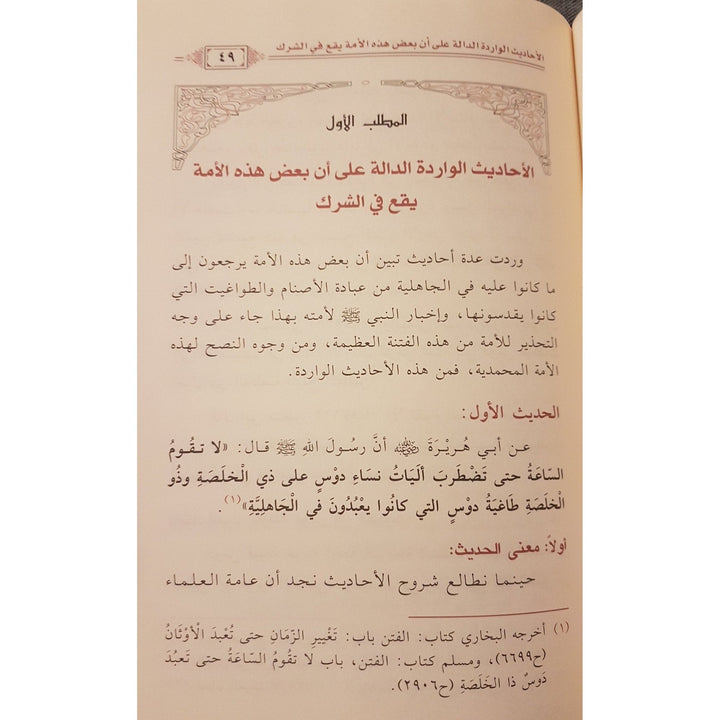 الأحاديث الواردة الدالة على أن بعض هذه الأمة يقع في الشرك
٤٩
المطلب الأول
الأحاديث الواردة الدالة على أن بعض هذه الأمة
يقع في الشرك
وردت عدة أحاديث تبين أن بعض هذه الأمة يرجعون إلى
ما كانوا عليه في الجاهلية من عبادة الأصنام والطواغيت التي
كانوا يقدسونها، وإخبار النبي ﷺ لأمته بهذا جاء على وجه
التحذير للأمة من هذه الفتنة العظيمة، ومن وجوه النصح لهذه
الأمة المحمدية، فمن هذه الأحاديث الواردة.
الحديث الأول:
عن أبي هُرَيْرَةَ رضي الله عنه أنَّ رسُولَ اللهِ ﷺ قال: «لا تقُومُ
السّاعَةُ حتى تَضْطَرِبَ ألَيَاتُ نسَاءِ دوْسٍ على ذي الْخلَصَةِ وذُو
الْخلَصَةِ طَاغيَةُ دوْسٍ التي كانُوا يعْبُدُونَ في الْجَاهلِيَّةِ»(١).
أولاً: معنى الحديث:
حينما نطالع شروح الأحاديث نجد أن عامة العلماء
(١) أخرجه البخاري كتاب: الفتن باب: تَغْيِيرِ الزّمَانِ حتى تُعْبدَ الْأوْثَانُ
(ح٦٦٩٩)، ومسلم كتاب: الفتن، باب لا تقُومُ السّاعَةُ حتى تَعبُدَ
دَوسٌ ذا الخَلَصَةِ (ح٢٩٠٦).